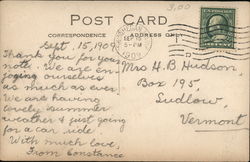 3.00
POST CARD
CORRESPONDENCE
ADDRESS ONLY
Sept. 15, 1909.
Thank you for your
note. We are en-
joying ourselves
as much as ever.
We are having
lovely summer
weather & just going
for a car ride.
With much love,
From Constance
Mrs H. B. Hudson
Box 195,
Ludlow,
Vermont